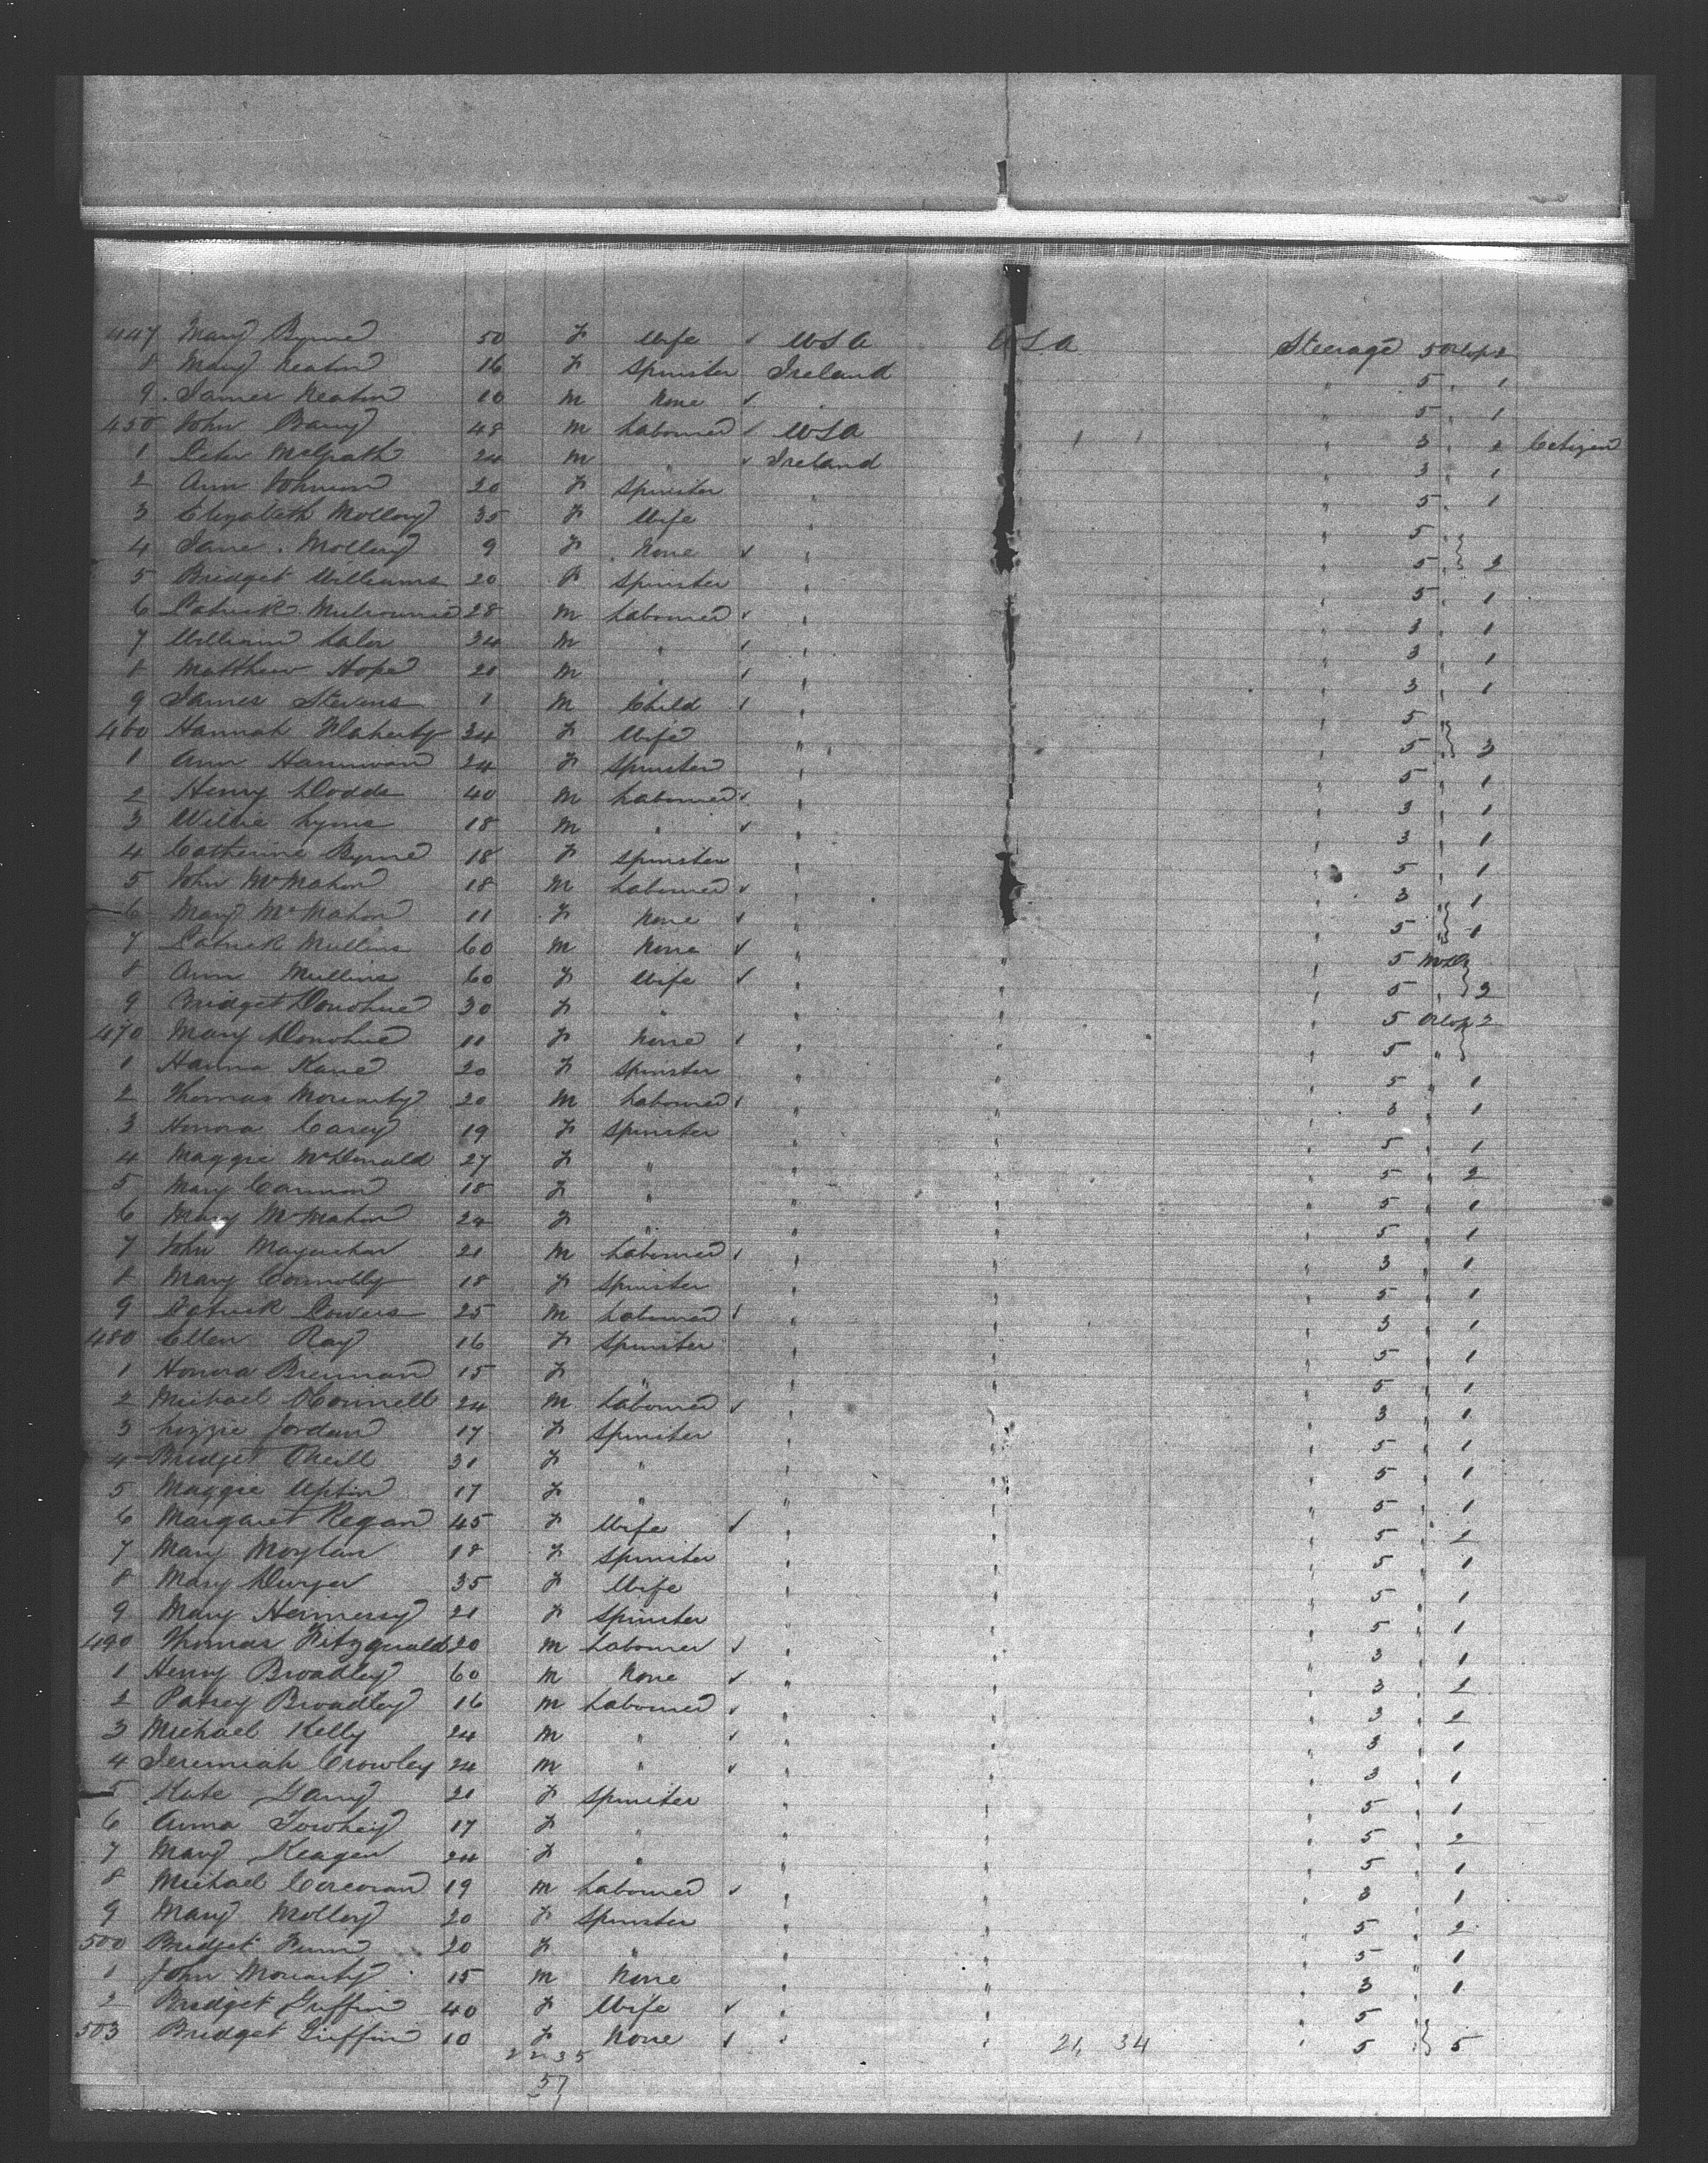 447 Mary Byrne 50 F Wife ✓ USA USA Steerage 5 Orlop 2
8 Mary Keaton 16 F Spinster Ireland " 5 " 1
9 James Keaton 10 M None ✓ " " 5 " 1
450 John Barry 48 M Labourer ✓ USA 1 1 " 3 " 2 Citizen
1 Peter McGrath 24 M " ✓ Ireland " 3 " 1
2 Ann Johnson 20 F Spinster " " 5 " 1
3 Elizabeth Molloy 35 F Wife " " 5 "
4 Jane Molloy 9 F None ✓ " " 5 " } 2
5 Bridget Williams 20 F Spinster " " 5 " 1
6 Patrick 28 M Labourer ✓ " " 3 " 1
7 William Lalor 24 M " ✓ " " 3 " 1
8 Matthew Hope 21 M " ✓ " " 3 " 1
9 James Stevens 1 M Child ✓ " " 5 "
460 Hannah Flaherty 34 F Wife " " 5 " } 3
1 Ann 24 F Spinster " " 5 " 1
2 Henry Dodds 40 M Labourer ✓ " " 3 " 1
3 Willie Lyons 18 M " ✓ " " 3 " 1
4 Catherine Byrne 18 F Spinster " " 5 " 1
5 John McMahon 18 M Labourer ✓ " " 3 " 1
6 Mary McMahon 11 F None ✓ " " 5 " } 1
7 Patrick Mullins 60 M None ✓ " " " 5
8 Ann Mullins 60 F Wife ✓ " " " 5 " } 2
9 Bridget Donohue 30 F " " " " 5 Orlop 2
470 Mary Donohue 11 F None ✓ " " " 5 " }
1 Hanna Kane 20 F Spinster " " " 5 " 1
2 Thomas Moriarty 20 M Labourer ✓ " " " 3 " 1
3 Honora Carey 19 F Spinster " " " 5 " 1
4 Maggie McDonald 27 F " " " " 5 " 2
5 Mary Cannon 18 F " " " " 5 " 1
6 Mary McMahon 24 F " " " " 5 " 1
7 John 21 M Labourer ✓ " " " 3 " 1
8 Mary Connolly 18 F Spinster " " " 5 " 1
9 Patrick Powers 25 M Labourer ✓ " " " 3 " 1
480 Ellen Ray 16 F Spinster " " " 5 " 1
1 Honora Brennan 15 F " " " " 5 " 1
2 Michael O'Connell 24 M Labourer ✓ " " " 3 " 1
3 Lizzie Jordan 17 F Spinster " " " 5 " 1
4 Bridget O'Neill 31 F " " " " 5 " 1
5 Maggie Upton 17 F " " " " 5 " 1
6 Margaret Regan 45 F Wife ✓ " " " 5 " 2
7 Mary Moylan 18 F Spinster " " " 5 " 1
8 Mary Dwyer 35 F Wife " " " 5 " 1
9 Mary Hennessy 21 F Spinster " " " 5 " 1
490 Thomas Fitzgerald 20 M Labourer ✓ " " " 3 " 1
1 Henry Broadley 60 M None ✓ " " " 3 " 2
2 Patsey Broadley 16 M Labourer ✓ " " " 3 " 2
3 Michael Kelly 24 M " ✓ " " " 3 " 1
4 Jeremiah Crowley 24 M " ✓ " " " 3 " 1
5 Kate Garry 21 F Spinster " " " 5 " 1
6 Anna Towhey 17 F " " " " 5 " 2
7 Mary Keagen 24 F " " " " 5 " 1
8 Michael Corcoran 19 M Labourer ✓ " " " 3 " 1
9 Mary Molloy 20 F Spinster " " " 5 " 2
500 Bridget 20 F " " " " 5 " 1
1 John Moriarty 15 M None " " " 3 " 1
2 Bridget Griffin 40 F Wife ✓ " " " 5 "
503 Bridget Griffin 10 F None ✓ " " 21, 34 " 5 " } 5
22 35
57